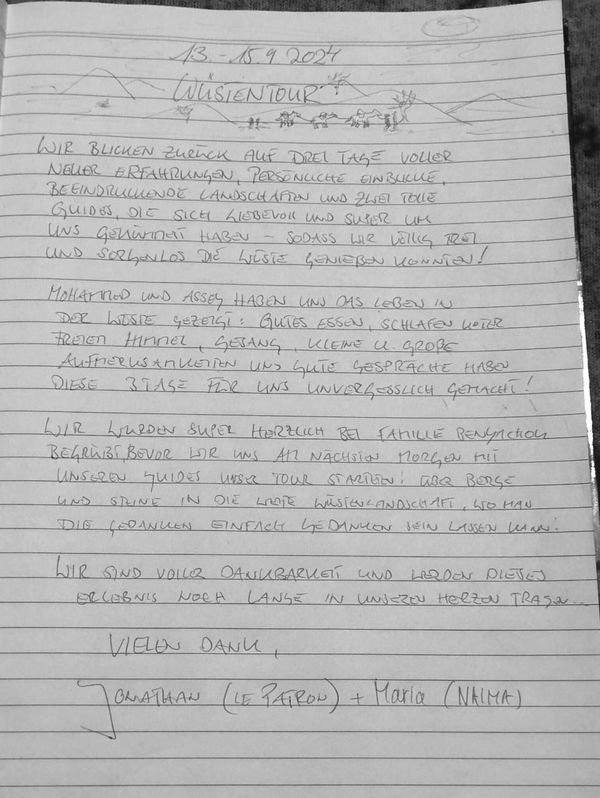 13.-15.9.2024
WÜSTENTOUR
WIR BLICKEN ZURÜCK AUF DREI TAGE VOLLER
NEUER ERFAHRUNGEN, PERSÖNLICHE EINBLICKE,
BEEINDRUCKENDE LANDSCHAFTEN UND ZWEI TOLLE
GUIDES, DIE SICH LIEBEVOLL UND SUPER UM
UNS GEKÜMMERT HABEN – SODASS WIR VÖLLIG FREI
UND SORGENLOS DIE WÜSTE GENIEßEN KONNTEN!
MOHAMMED UND HABEN UNS DAS LEBEN IN
DER WÜSTE GEZEIGT: GUTES ESSEN, SCHLAFEN UNTER
FREIEM HIMMEL, GESANG, KLEINE U. GROßE
AUFMERKSAMKEITEN UND GUTE GESPRÄCHE HABEN
DIESE 3 TAGE FÜR UNS UNVERGESSLICH GEMACHT!
WIR WURDEN SUPER HERZLICH BEI FAMILLE
BEGRÜßT, BEVOR WIR UNS AM NÄCHSTEN MORGEN MIT
UNSEREN GUIDES UNSER TOUR STARTETEN: ÜBER BERGE
UND STEINE IN DIE WEITE WÜSTENLANDSCHAFT, WO MAN
DIE GEDANKEN EINFACH GEDANKEN SEIN LASSEN KANN!
WIR SIND VOLLER DANKBARKEIT UND WERDEN DIESES
ERLEBNIS NOCH LANGE IN UNSEREN HERZEN TRAGEN...
VIELEN DANK,
JONATHAN (LE PATRON) + Maria (NAIMA)